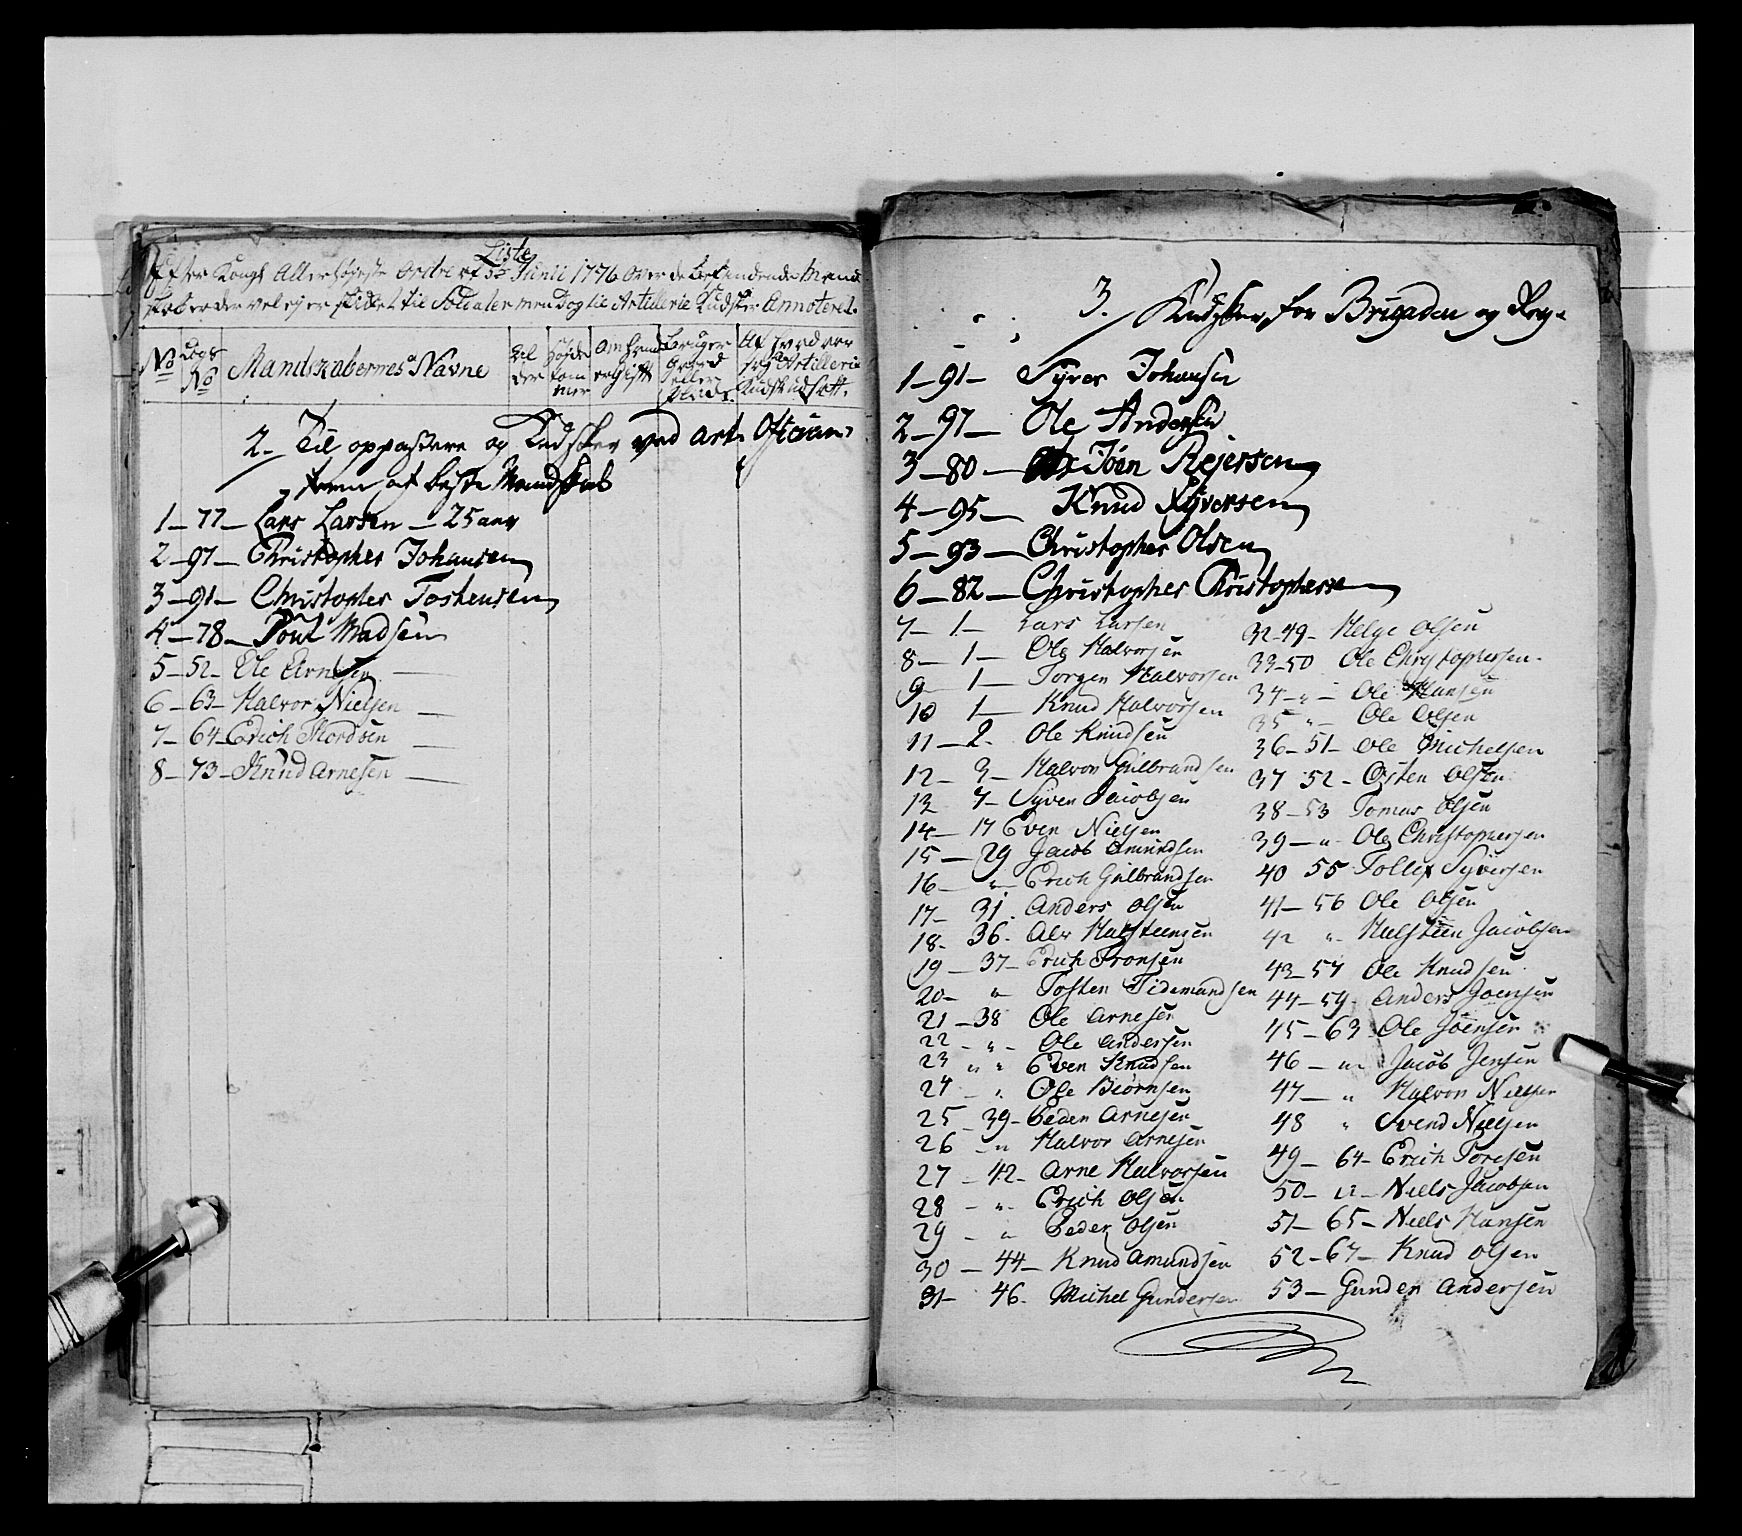 Liste
Efter Kongl Allerhøyeste Ordre af 5te Junii 1776 over de befindende Mand
skaber der vel ej er skikket til Soldater men dog til Artillerie Kudsker Annoteret.
No
Lægs No
Mandskabernes Navne
Al der
Høyde tom mer
Om hand er gift
Bruger Gaard eller Plads.
Af hvad aar sog Artillerie Kudsk udsatt.
2. Til oppassere og Kudsker ved Art. Officieer
af beste Mandskab
1 - 77 - Lars Larsen - 25 aar
2 - 97 - Christopher Johansen
3 - 91 - Christopher Tostensen
4 - 78 - Poul Madsen
5 - 52 - Ole Arnesen
6 - 63 - Halvor Nielsen
7 - 64 - Erich Thordsen
8 - 73 - Knud Arnesen
3. Kudsker for Brigaden og Reg.
1 - 91 - Syver Johansen
2 - 97 - Ole Andersen
3 - 80 - Jöen Rejersen
4 - 95 - Knud Syversen
5 - 93 - Christopher Olsen
6 - 82 - Christopher Christophersen
7 - 1 - Lars Larsen
8 - 1 - Ole Halvorsen
9 - 1 - Jorgen Halvorsen
10 1 - Knud Halvorsen
11 - 2 - Ole Knudsen
12 - 3 - Halvor Gulbrandsen
13 7 - Syver Jacobsen
14 - 17 Even Nielsen
15 - 29 Jacob Amundsen
16 - " - Erich Gulbrandsen
17 - 31. Anders Olsen
18 - 36 - Alv Halsteensen
19 - 37 - Erich Tronsen
20 - " Tosten Tidemandsen
21 - 38 Ole Arnesen
22 - " - Ole Andersen
23 " " Even Knudsen
24 - " Ole Biörnsen
25 - 39 - Peder Arnesen
26 - " Halvor Arnesen
27 - 42 - Arne Halvorsen
28 - " - Erich Olsen
29 - " Peder Olsen
30 - 44 - Knud Amundsen
31 - 46 - Michel Gundersen
32 - 49 - Helge Olsen
33 - 50 Ole Christophersen
34 - " - Ole Hansen
35 " - Ole Olsen
36 - 51 - Ole Michelsen
37 52 - Östen Olsen
38 - 53 Tomas Olsen
39 - " - Ole Christophersen
40 55 Tollef Syversen
41 - 56 Ole Olsen
42 " - Halsteen Jacobsen
43 - 57 Ole Knudsen
44 - 59 - Anders Joensen
45 - 63 - Ole Joensen
46 - " - Jacob Jensen
47 - " Halvor Nielsen
48 " Svend Nielsen
49 - 64 - Erich Toresen
50 - " - Niels Jacobsen
51 - 65 - Niels Hansen
52 - 67 - Knud Olsen
53 - Gunder Andersen